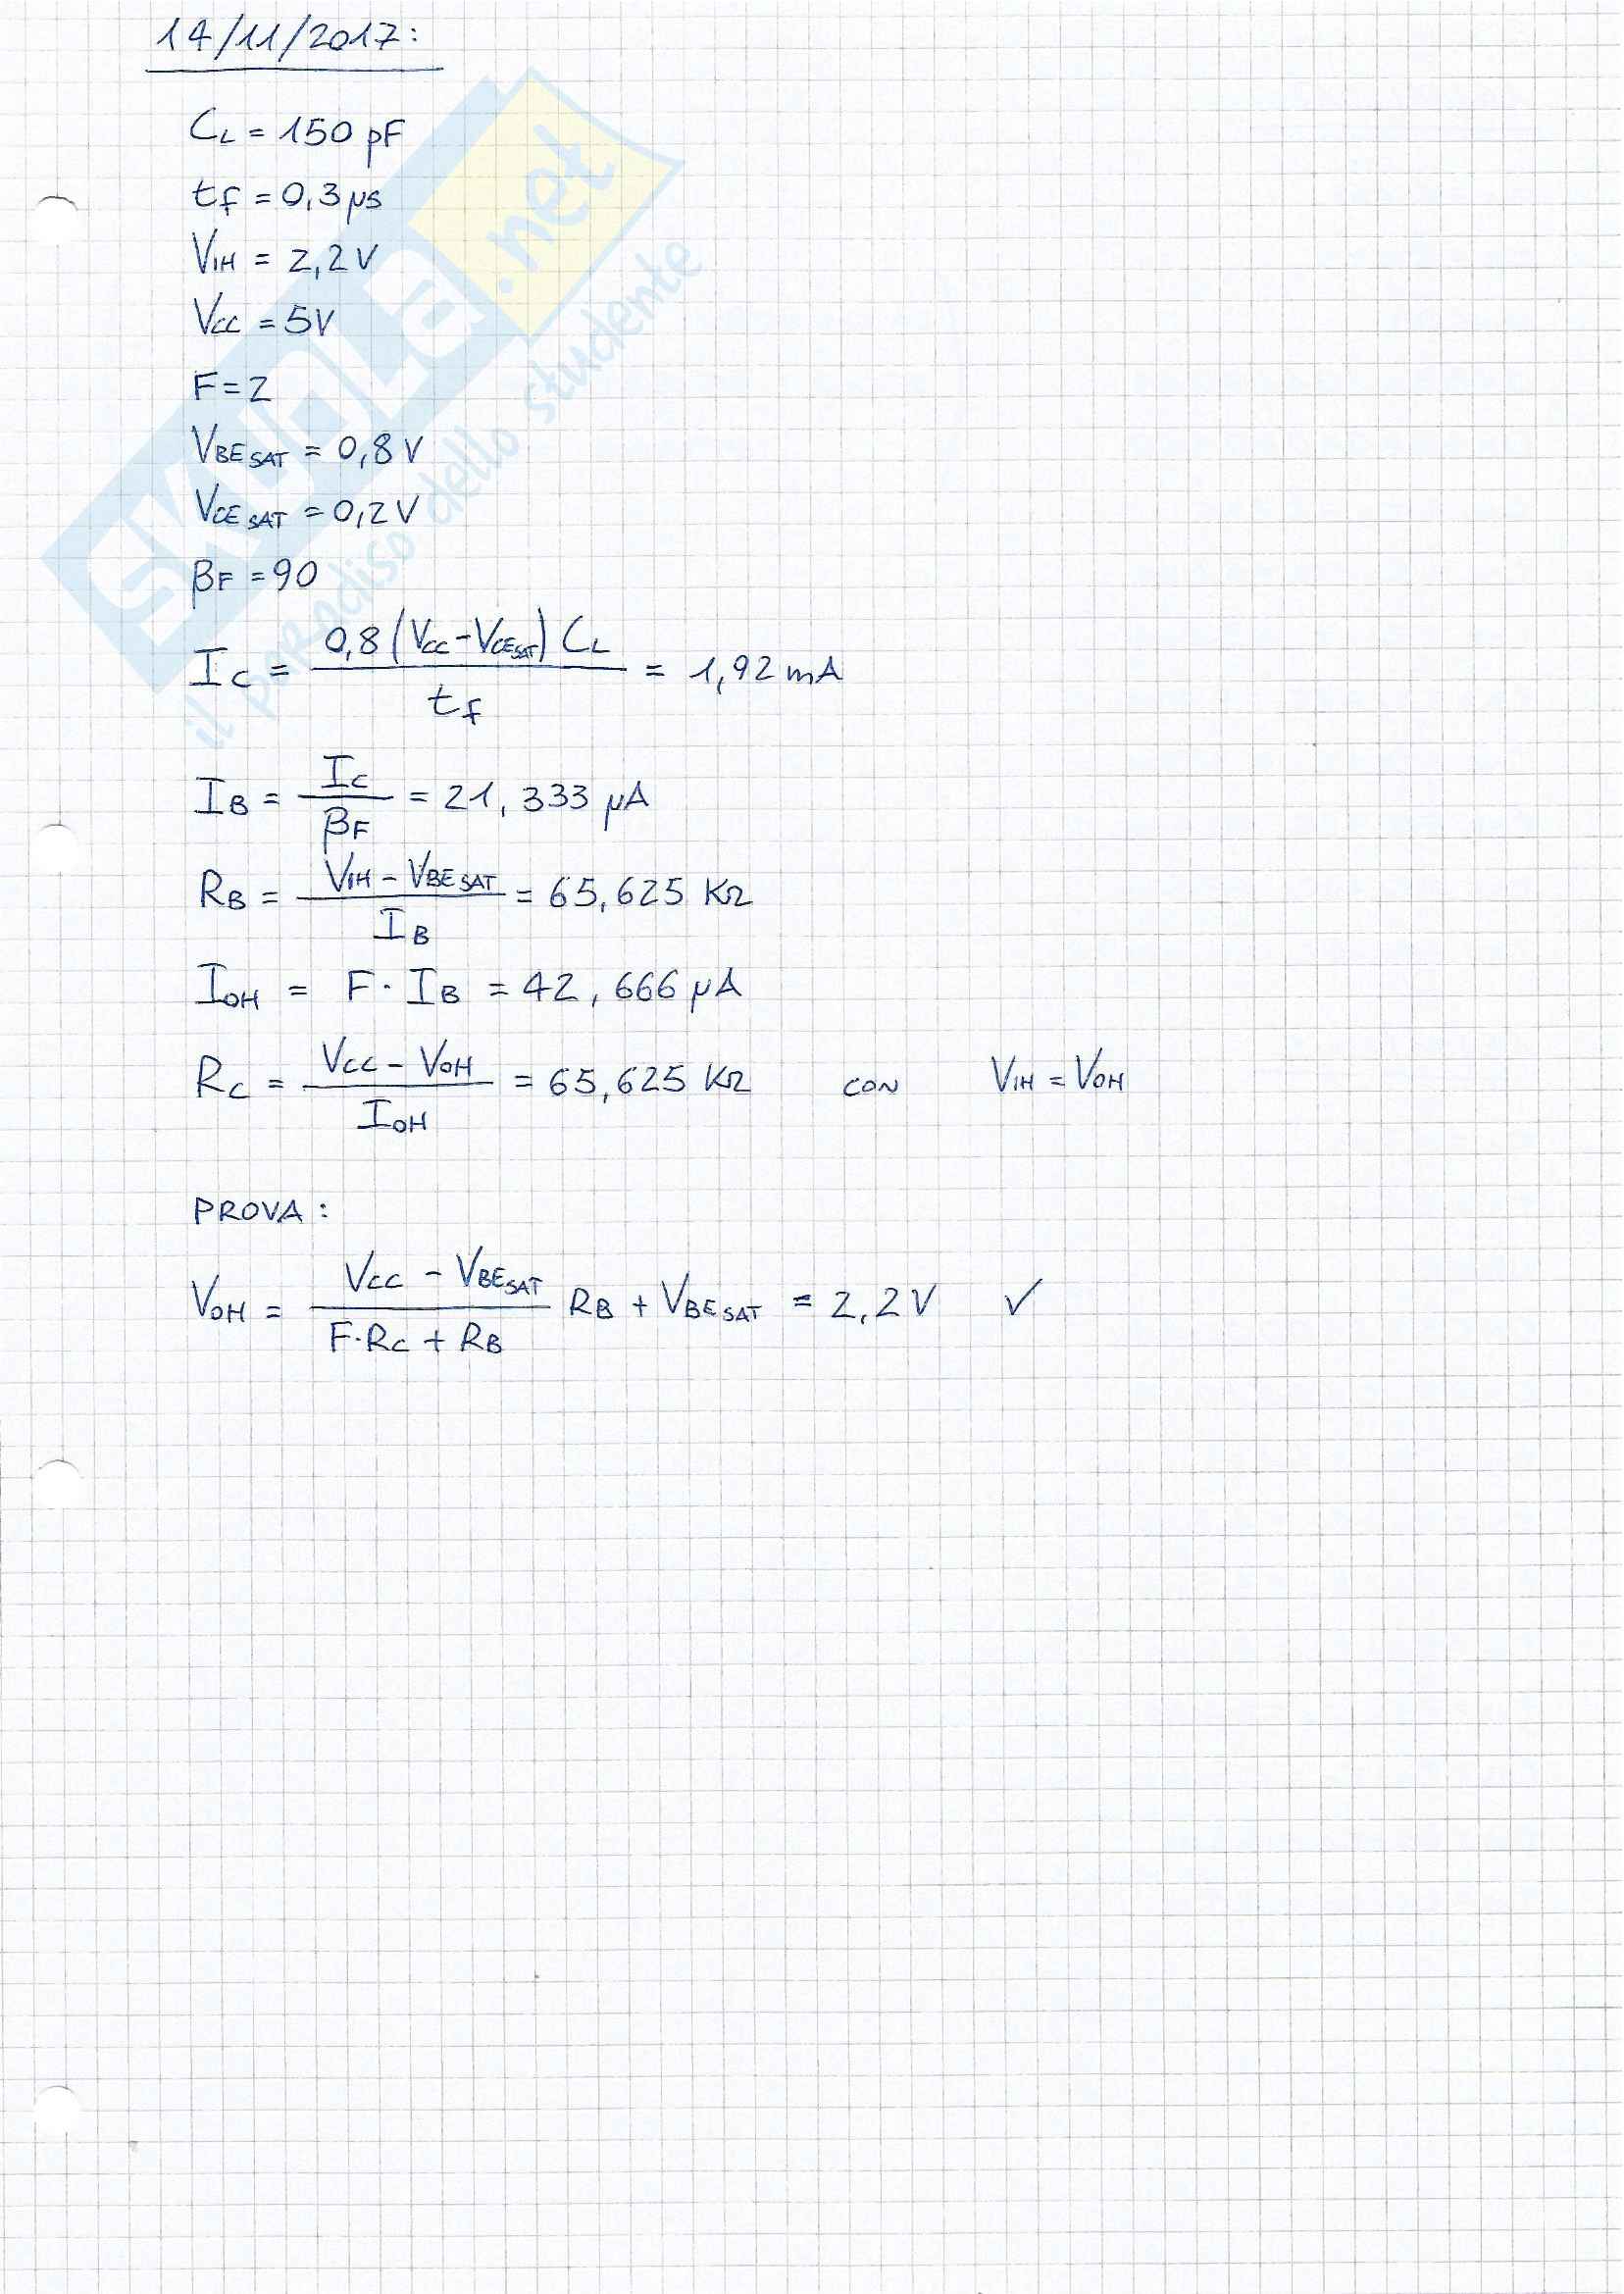 14/11/2017:
CL = 150 pF
tf = 0,3 μs
VIH = 2,2 V
VCC = 5V
F = 2
VBE SAT = 0,8 V
VCE SAT = 0,2 V
βF = 90
IC = 0,8 (VCC - VCE SAT) CL / tf = 1,92 mA
IB = IC / βF = 21,333 μA
RB = VIH - VBE SAT / IB = 65,625 KΩ
IOH = F · IB = 42,666 μA
RC = VCC - VOH / IOH = 65,625 KΩ CON VIH = VOH
PROVA:
VOH = VCC - VBE SAT / F·RC + RB RB + VBE SAT = 2,2 V ✓
SKUOLA.net
il paradiso dello studente